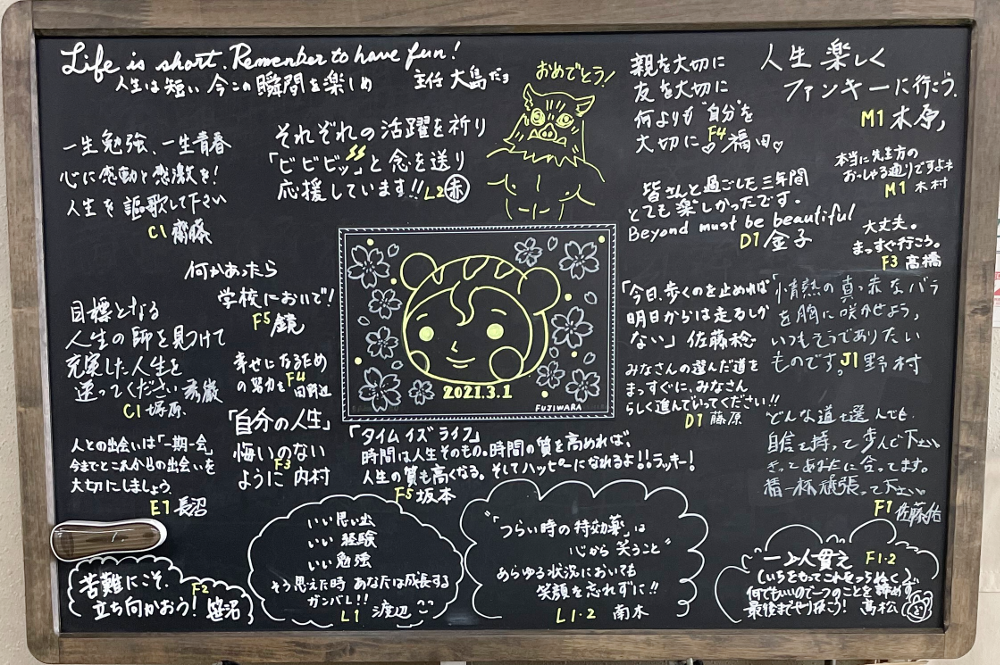 Life is short. Remember to have fun!
人生は短い 今この瞬間を楽しめ 主任 大島だョ
一生勉強、一生青春
心に感動と感激を!
人生を謳歌して下さい
C1 齋藤
それぞれの活躍を祈り
「ビビビッ」と念を送り
応援しています!! L2 赤
おめでとう!
親を大切に
友を大切に
何よりも"自分"を
大切に♡ F4 福田♡
人生 楽しく
ファンキーに行こう。
M1 木原
本当に先生方の
おっしゃる通りですよネ
M1 木村
皆さんと過ごした三年間
とても楽しかったです。
Beyond must be beautiful
D1 金子
大丈夫。
まっすぐ行こう。
F3 高橋
何かあったら
学校においで!
F5 鏡
目標となる
人生の師を見つけて
充実した人生を
送ってください
C1 塚原
幸せになるため
の努力を F4
田野辺
2021.3.1
FUJIWARA
「今日、歩くのを止めれば
明日からは走るしか
ない」 佐藤稔
みなさんの選んだ道を
まっすぐに、みなさん
らしく進んでいってください!!
D1 藤原
「情熱の真っ赤なバラ
を胸に咲かせよう」
いつもそうでありたい
ものです。J1 野村
人との出会いは「一期一会」
今までとこれからの出会いを
大切にしましょう
E1 長沼
「自分の人生」
悔いのない
ように F3 内村
「タイム イズ ライフ」
時間は人生そのもの。時間の質を高めれば、
人生の質も高くなる。そしてハッピーになれるよ!!ラッキー!
F5 坂本
どんな道を選んでも、
自信を持って歩んで下さい
きっとあなたに合ってます。
精一杯頑張って下さい
F1 佐藤佑
苦難にこそ、
立ち向かおう! F2 笹沼
いい思い出
いい経験
いい勉強
そう思えた時 あなたは成長する
ガンバレ!!
L1 渡辺
"「つらい時の特効薬」は
心から笑うこと"
あらゆる状況においても
笑顔を忘れずに!!
L1・2 南木
一以貫之 F1・2
(いちをもってこれをつらぬく)
何でもいいので一つのことを諦めず
最後までやり抜こう! 髙松